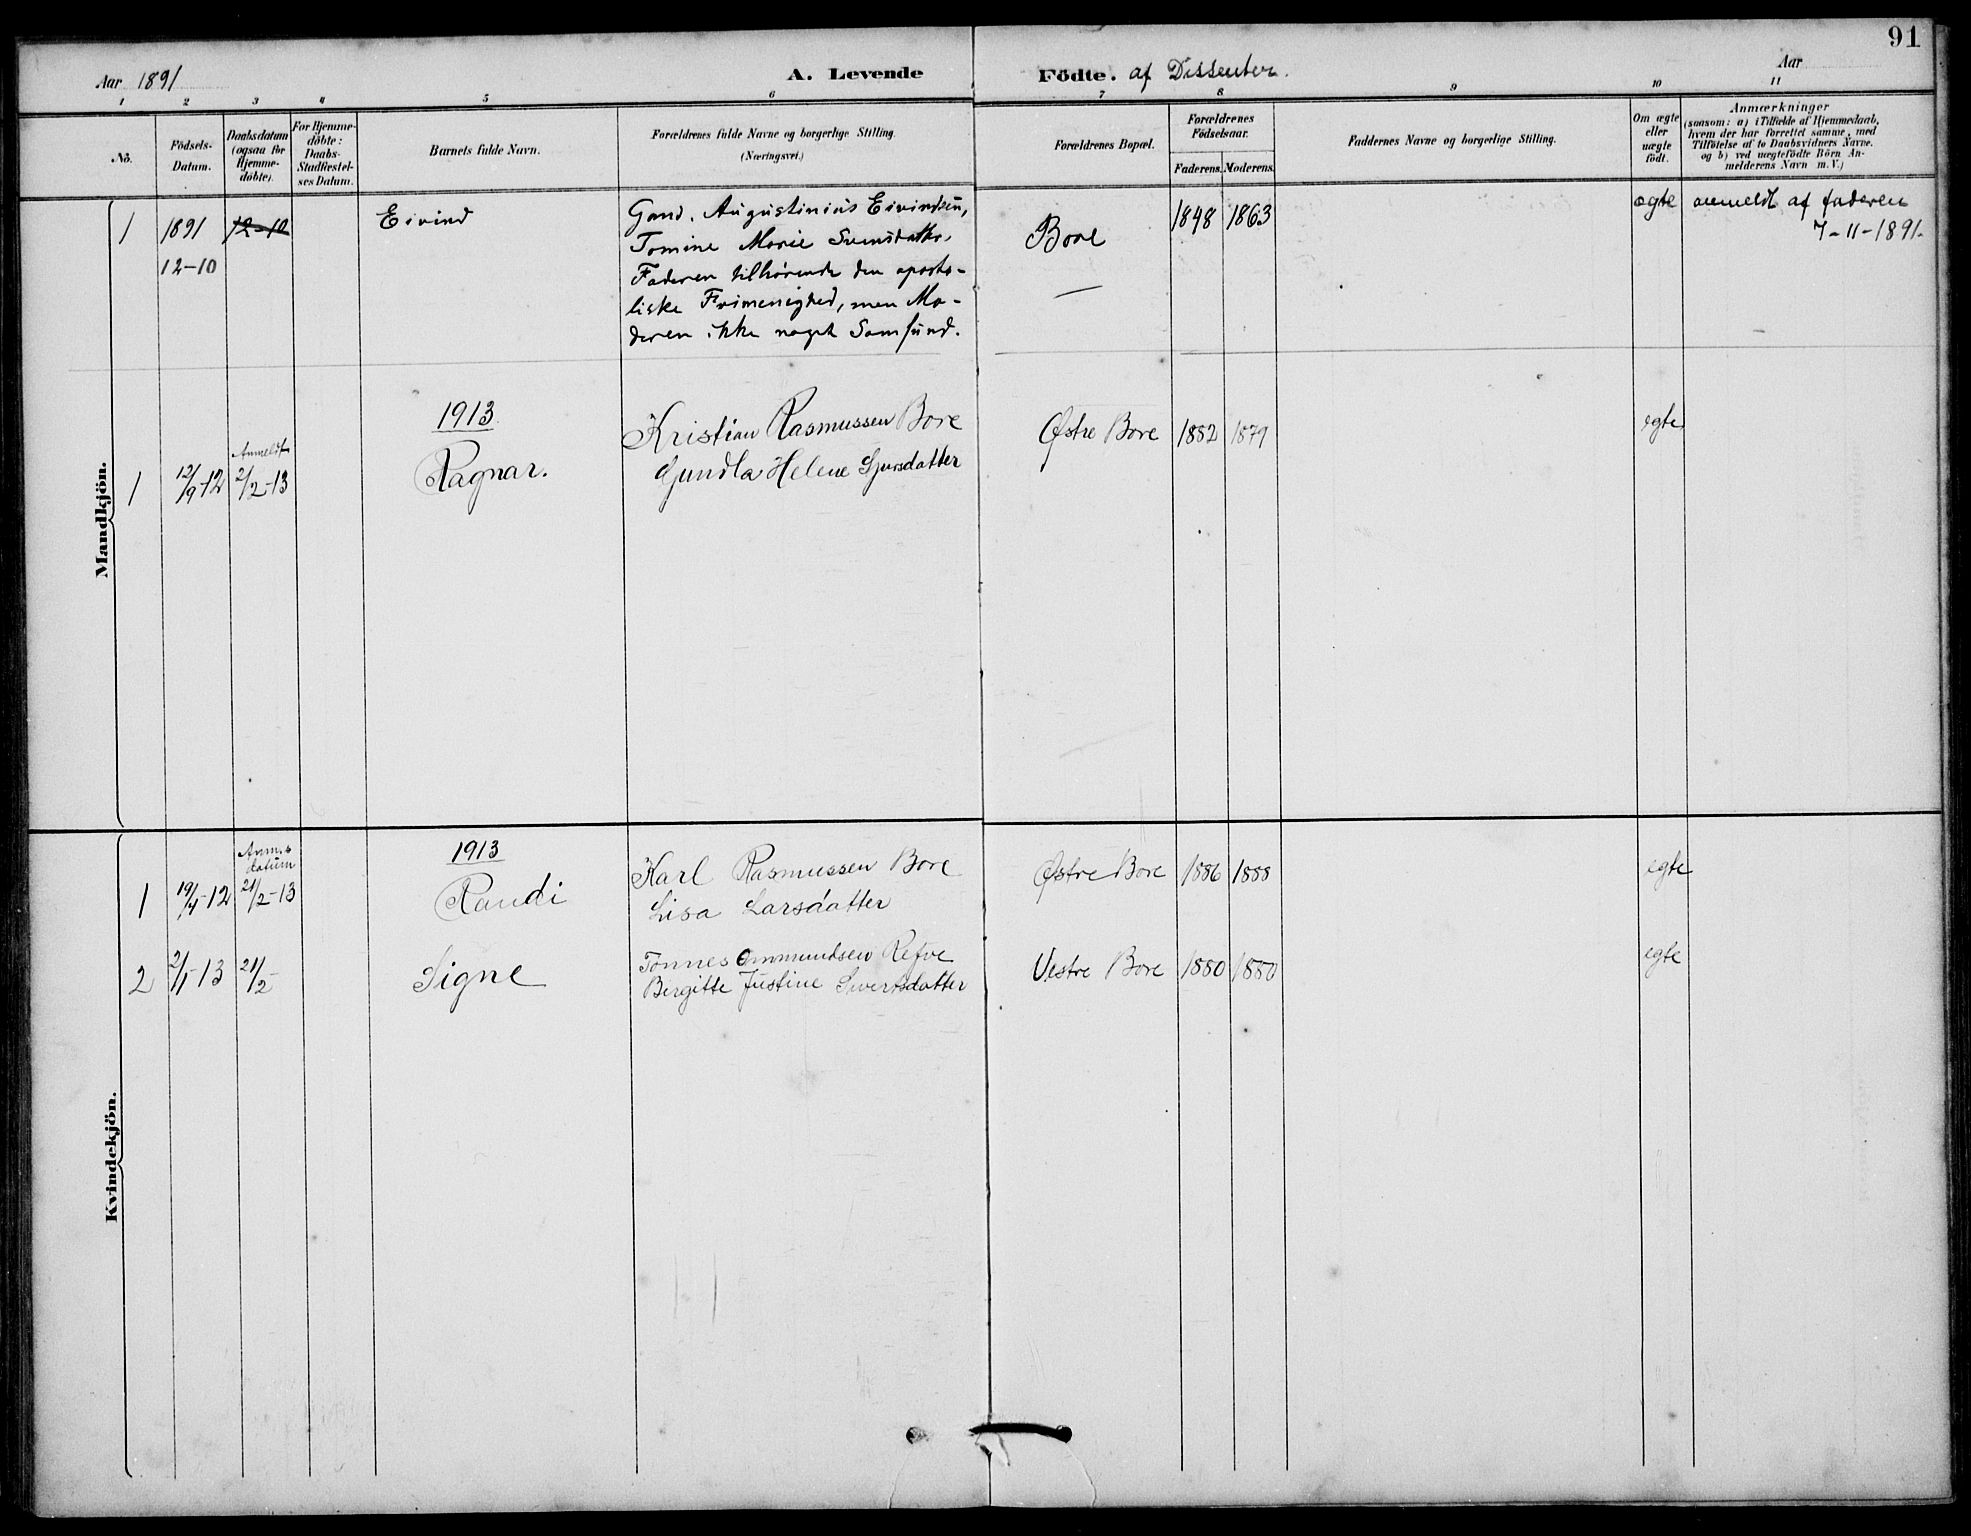 91
Aar 1891 A. Levende Födte. af Dissenter. Aar
1 2 3 4 5 6 7 8 9 10 11
No.
Födsels-
Datum.
Daabsdatum
(ogsaa for
Hjemme-
döbte).
For Hjemme-
döbte:
Daabs-
Stadfæstel-
ses Datum.
Barnets fulde Navn.
Forældrenes fulde Navne og borgerlige Stilling.
(Næringsvei.)
Forældrenes Bopæl.
Forældrenes
Födselsaar.
Faderens. Moderens.
Faddernes Navne og borgerlige Stilling.
Om ægte
eller
uægte
födt.
Anmærkninger
(saasom: a) i Tilfælde af Hjemmedaab,
hvem der har forrettet samme, med
Tilföielse af to Daabsvidners Navne.
og b) ved uægtefödte Börn An-
melderens Navn m. V.)
Mandkjön.
1
1891
12-10
12-10
Eivind
Gaml. Augustinius Eivindsen,
Tomine Marie Svensdatter,
Faderen tilhørende den aposto-
liske Frimenighed, men Mo-
deren ikke noget Samfund.
Bore
1848 1863
ægte
anmeldt af faderen
7-11-1891.
1913
1
12/9-12
Anmeldt
2/2-13
Ragnar.
Kristian Rasmussen Bore
Gundla Helene Sjursdatter
Østre Bore
1882 1879
egte
Kvindekjön.
1913
1
19/4-12
datum
21/2-13
Randi
Karl Rasmussen Bore
Lisa Larsdatter
Østre Bore
1886 1888
egte
2
2/1-13
21/2-
Signe
Tønnes Ommundsen Refve
Bergitte Justine Sivertsdatter
Vestre Bore
1880 1880
egte